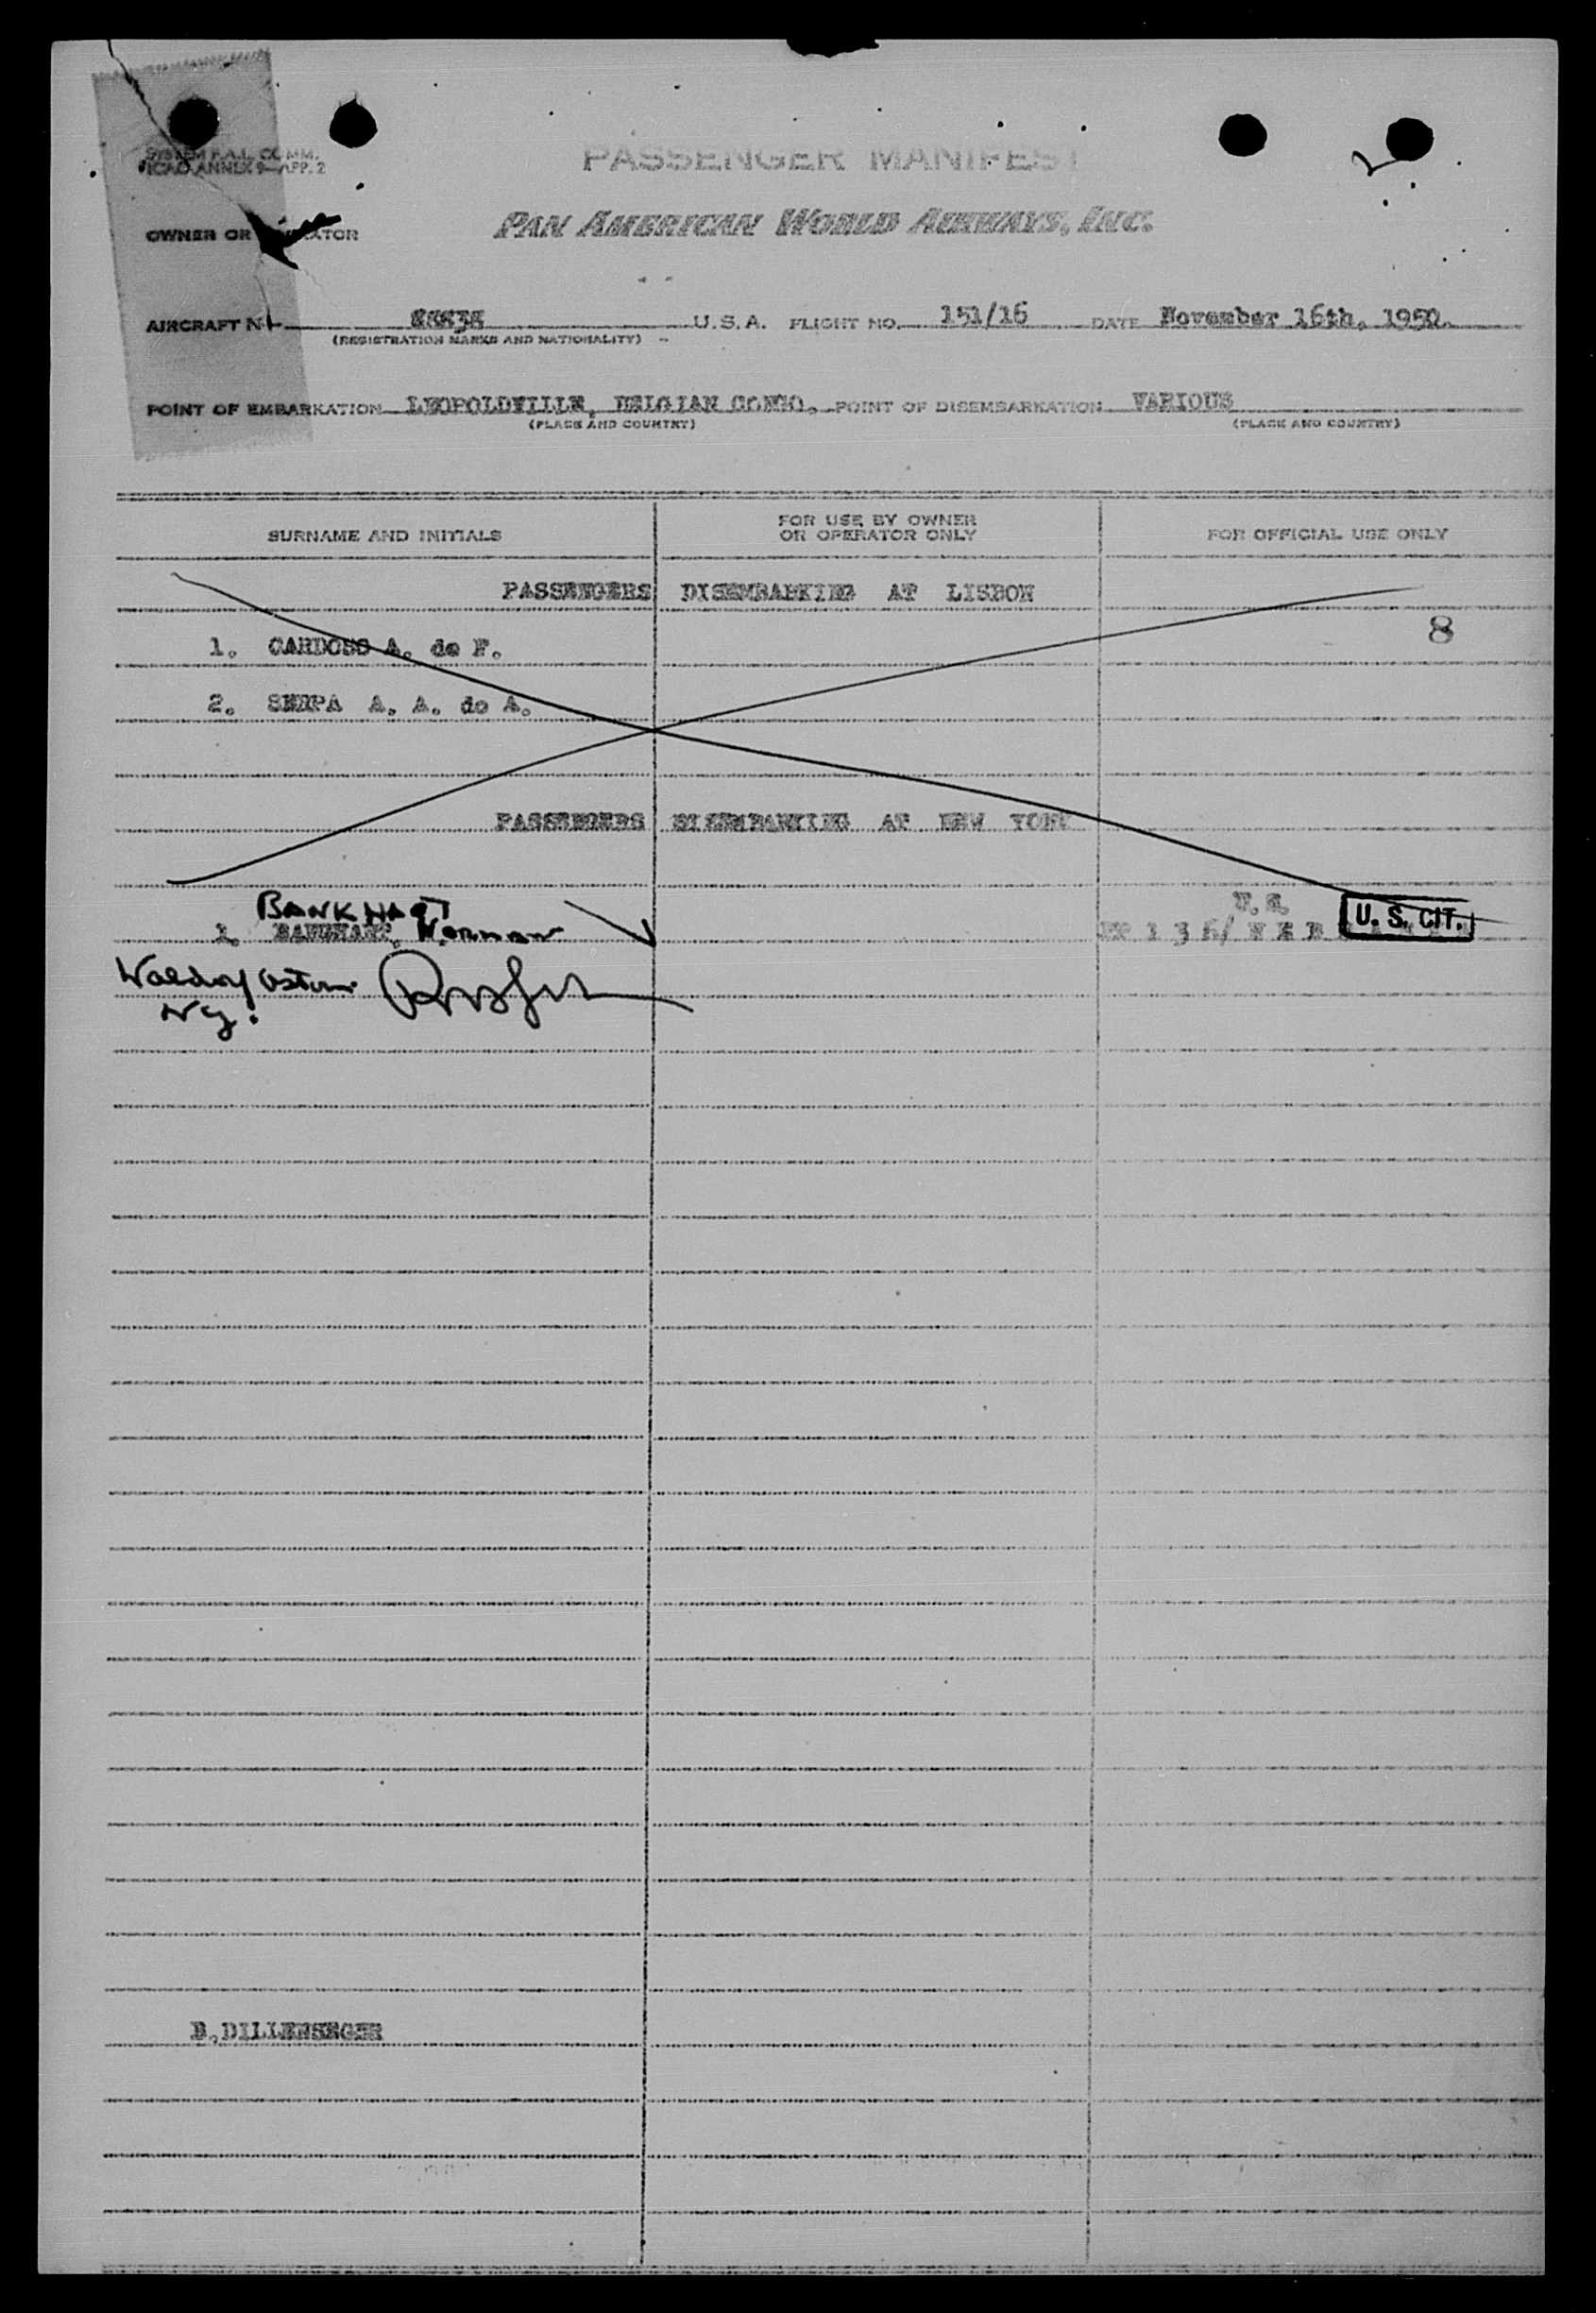 SYSTEM F.A.L. COMM.
ICAO ANNEX 9—APP. 2
PASSENGER MANIFEST
OWNER OR OPERATOR
PAN AMERICAN WORLD AIRWAYS, INC.
AIRCRAFT U.S.A. FLIGHT NO. 151/16 DATE November 16th, 1950.
(REGISTRATION MARKS AND NATIONALITY)
POINT OF EMBARKATION LEOPOLDVILLE, BELGIAN CONGO. POINT OF DISEMBARKATION VARIOUS
(PLACE AND COUNTRY) (PLACE AND COUNTRY)
SURNAME AND INITIALS
FOR USE BY OWNER
OR OPERATOR ONLY
FOR OFFICIAL USE ONLY
PASSENGERS DISEMBARKING AT LISBON
8
1. CARDOSO A. de F.
2. SERPA A. A. de A.
PASSENGERS DISEMBARKING AT NEW YORK
BANKHART
U.S.
1. Norman U. S. CIT.
Waldorf Astoria
NY.
B.DILLENSEGER